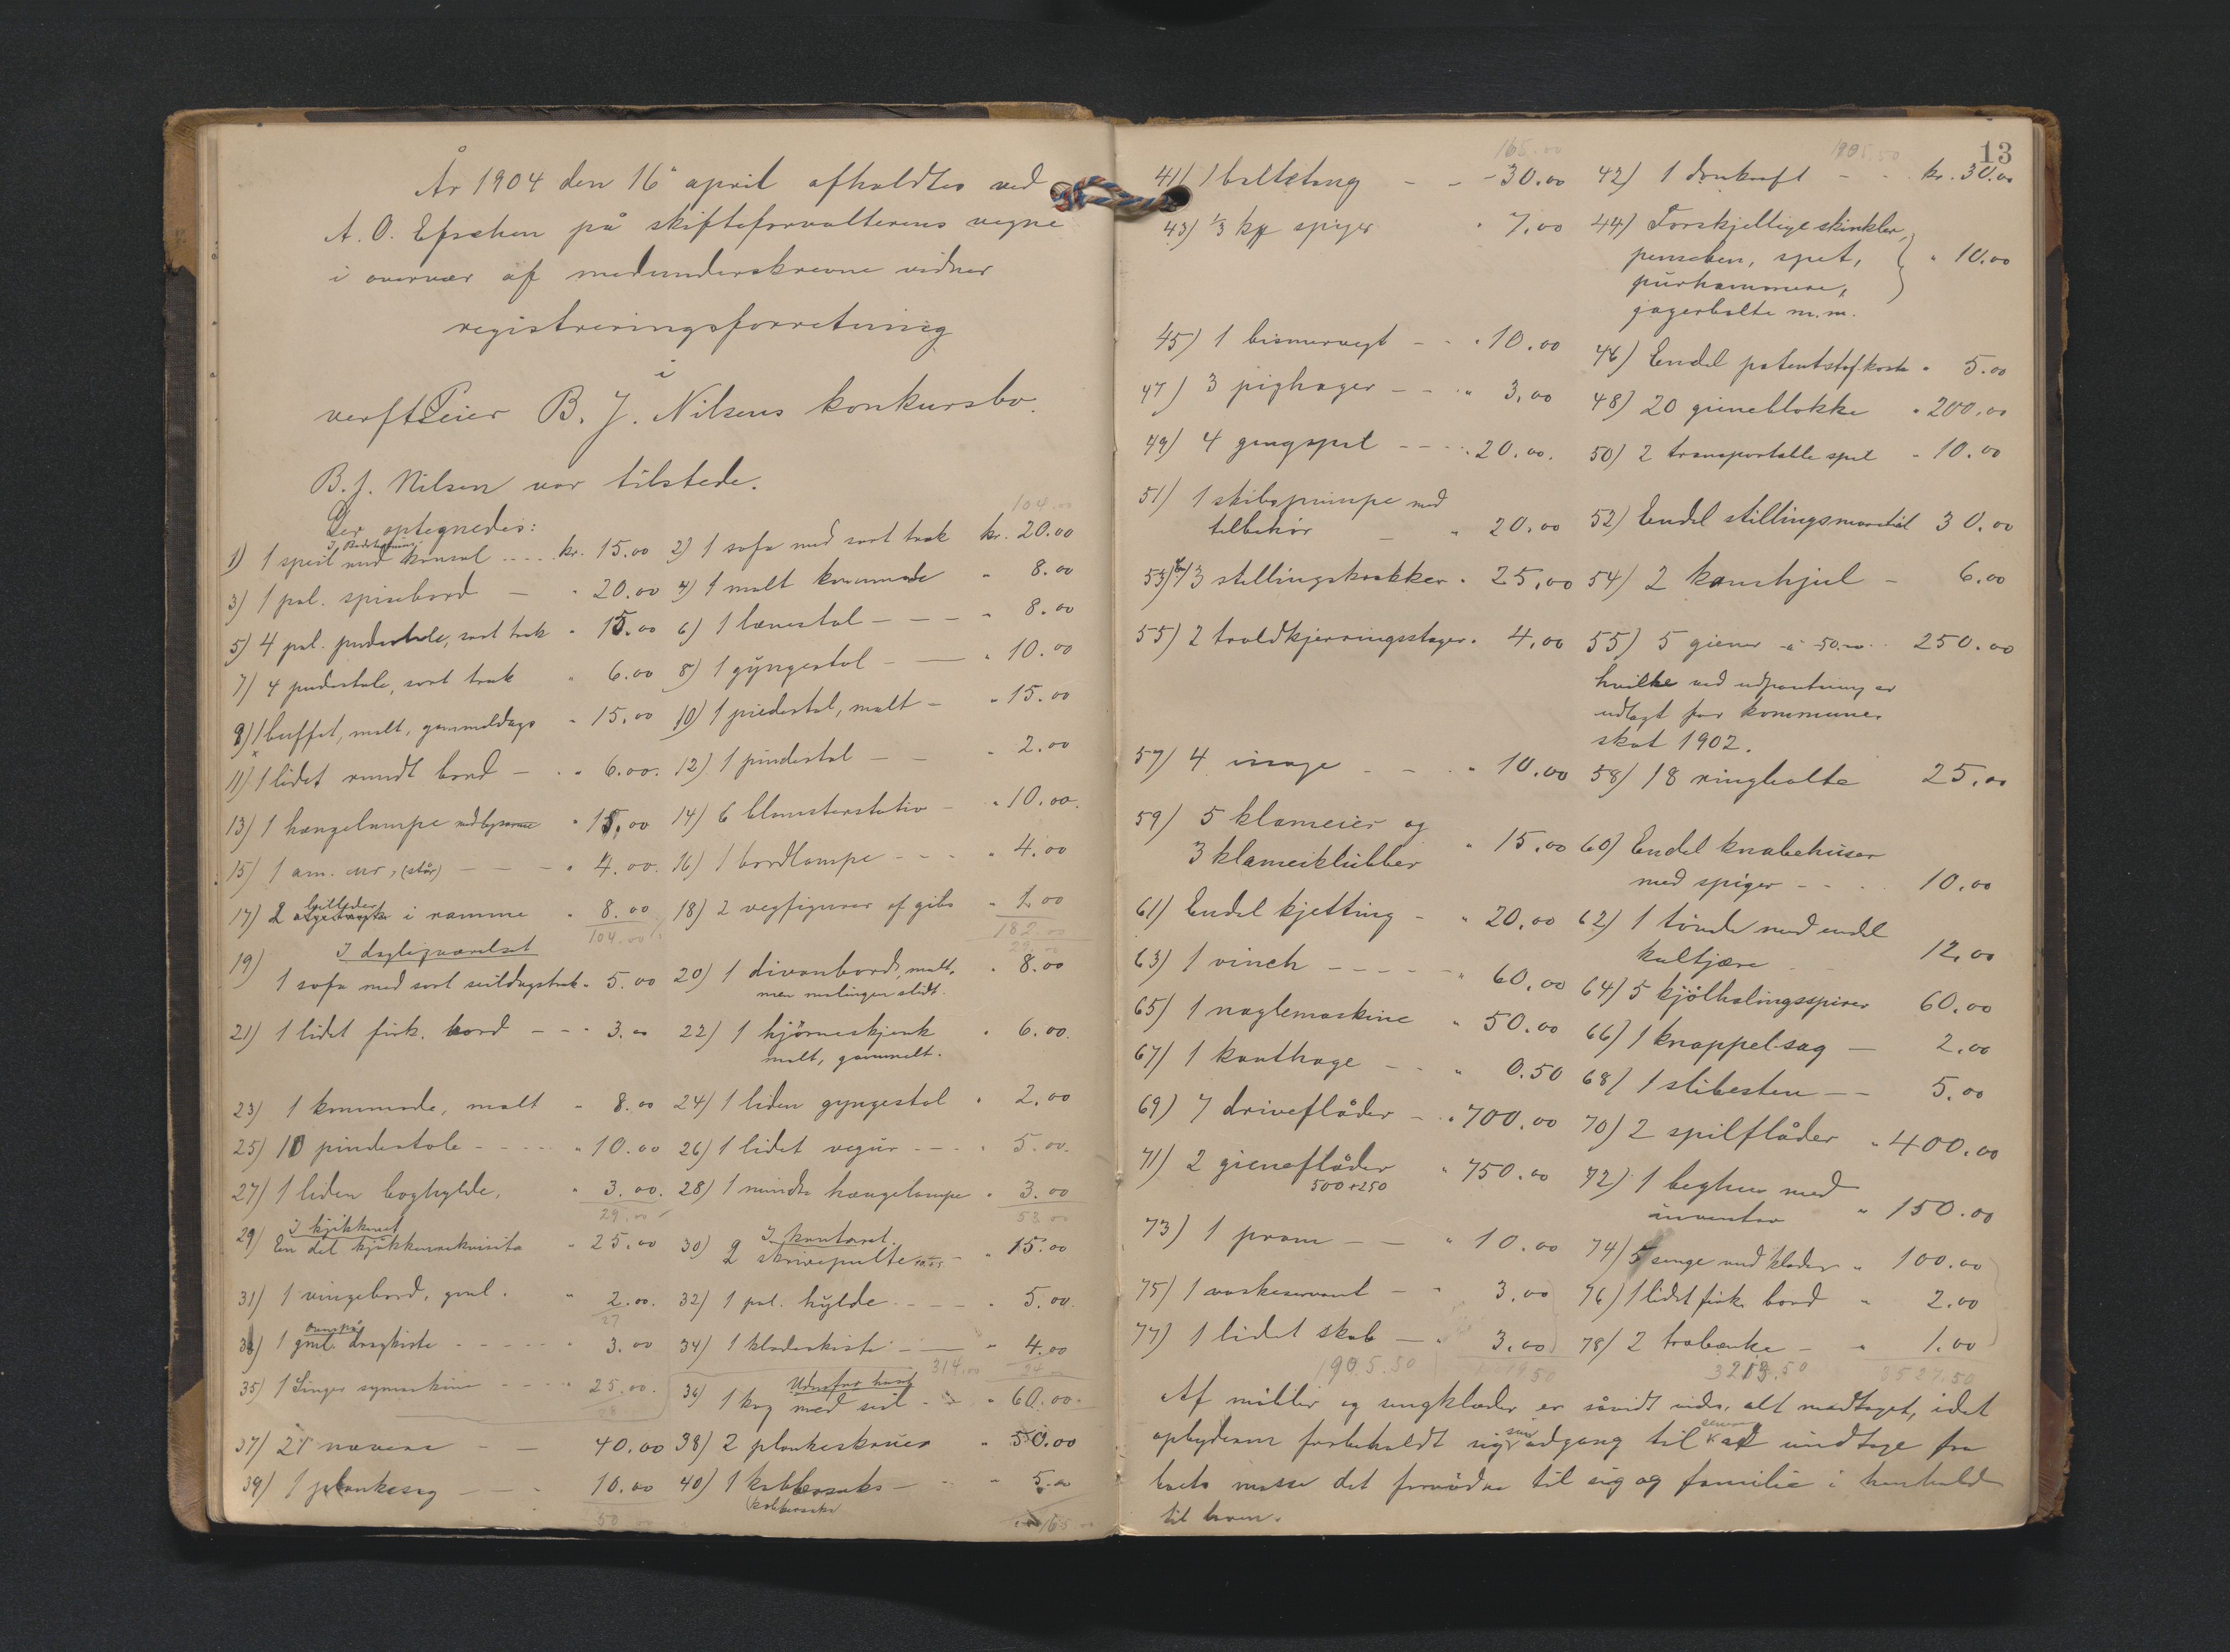 År 1904 den 16 april afholdtes ved
A. O. på skifteforvalterens vegne
i overvær af medunderskrevne vidner
registreringsforretning
i
verftseier B. J. Nilsens konkursbo.
B. J. Nilsen var tilstede.
Der optegnedes:
1) 1 speil med konsol .... kr. 15.00 2) 1 sofa med sort træk kr. 20.00
104.00
3) 1 pol. spisebord — " 20.00 4) 1 malt kommode " 8.00
5) 4 pol. pudestole, sort træk " 15.00 6) 1 lænestol - — — " 8.00
7) 4 pudestole, sort træk " 6.00 8) 1 gyngestol - — " 10.00
9) 1 buffet, malt, gammeldags " 15.00 10) 1 piedestal, malt - " 15.00
11) 1 lidet rundt bord — " 6.00. 12) 1 pindestol — — " 2.00
13) 1 hængelampe " 15.00 14) 6 blomsterstativ — " 10.00.
15) 1 am. ur, (står) — — — " 4.00. 16) 1 bordlampe - - - " 4.00
17) 2 billeder i ramme " 8.00 18) 2 vegfigurer af gibs " 1.00
104.00 182.00
I dagligværelset
19) 1 sofa med sort seildugstræk " 5.00 20) 1 divanbord, malt, " 8.00
men malingen slidt.
21) 1 lidet firk. bord — - - 3.00 22) 1 hjørneskjenk " 6.00.
malt, gammelt.
23) 1 kommode, malt - 8.00 24) 1 liden gyngestol " 2.00
25) 10 pindestole - - - - " 10.00 26) 1 lidet vegur - - - " 5.00.
27) 1 liden boghylde, " 3.00. 28) 1 mindre hængelampe " 3.00
29.00 53.00
I kjøkkenet I kontoret.
29) En del kjøkkenrekvisita " 25.00 30) 2 skrivepulte " 15.00
31) 1 vingebord, gml. " 2.00. 32) 1 pol. hylde - - - - " 5.00.
27
ovenpå
33) 1 gml. dragkiste - - - - - " 3.00 34) 1 klædeskiste - — " 4.00
314.00 24
35) 1 Singer symaskine - - - " 25.00. 36) 1 kog med seil - " 60.00.
Udenfor huset
28
37) 21 navere — — 40.00 38) 2 plankeskruer " 50.00
39) 1 plankesag — — - 10.00 40) 1 kobbersaks — " 5.00
kobbersaks
50 165
13
165.00 1905.50
41) 1 boltetang — — " 30.00 42) 1 donkraft — - - kr. 30.00
43) 1/3 kg spiger " 7.00 44) Forskjellige skinkler,
penseben, spet, " 10.00
purhammere,
jagerbolte m.m.
45) 1 bismervegt — - " 10.00 46) Endel patentstof.koste " 5.00
47) 3 pighager — — " 3.00 48) 20 gieneblokke " 200.00
49) 4 gangspil — — - - 20.00. 50) 2 transportable spil " 10.00
51) 1 skibspumpe med
tilbehør — " 20.00 52) Endel stillingsmaterial 30.00
53) 3 stillingskrakker " 25.00 54) 2 kamhjul — 6.00
55) 2 troldkjerringsstager " 4.00 55) 5 giener - à 50.00 .. 250.00
hvilke ved udpantning er
udlagt for kommune-
skat 1902.
57) 4 - - - " 10.00 58) 18 ringbolte 25.00
59) 5 klameier og
3 klameiklubber " 15.00 60) Endel knabehuser
med spiger — - - 10.00
61) Endel kjetting - " 20.00 62) 1 tønde med endel
kultjære 12.00
63) 1 vinch — - - - - " 60.00 64) 5 kjølhalingsspirer 60.00
65) 1 naglemaskine " 50.00 66) 1 knappel-sag — 2.00
67) 1 kanthage — - - " 0.50 68) 1 slibesten — — 5.00
69) 7 driveflåder — " 700.00 70) 2 spilflåder " 400.00
71) 2 gieneflåder " 750.00 72) 1 beghus med
500 + 250 inventar " 150.00
73) 1 pram — — " 10.00 74) 5 senge med klæder " 100.00
75) 1 vaskeservant — - 3.00 76) 1 lidet firk. bord " 2.00
77) 1 lidet skab — " 3.00 78) 2 træbænke — " 1.00
1905.50 3213.50 3527.50
Af møbler og sengklæder er såvidt vides, alt medtaget, idet
opbyderen forbeholdt sig sin adgang til senere at undtage fra
boets masse det fornødne til sig og familie i henhold
til loven.